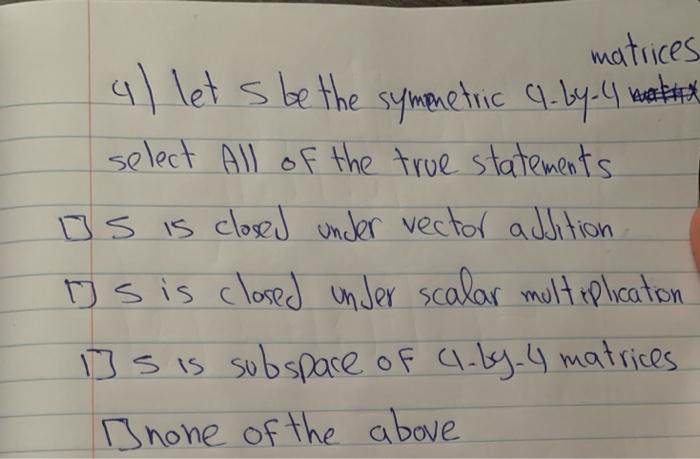 matrices
4) let S be the symmetric 4-by-4 matrix
select All of the true statements
S is closed under vector addition
S is closed under scalar multiplication
S is subspace of 4-by-4 matrices
none of the above